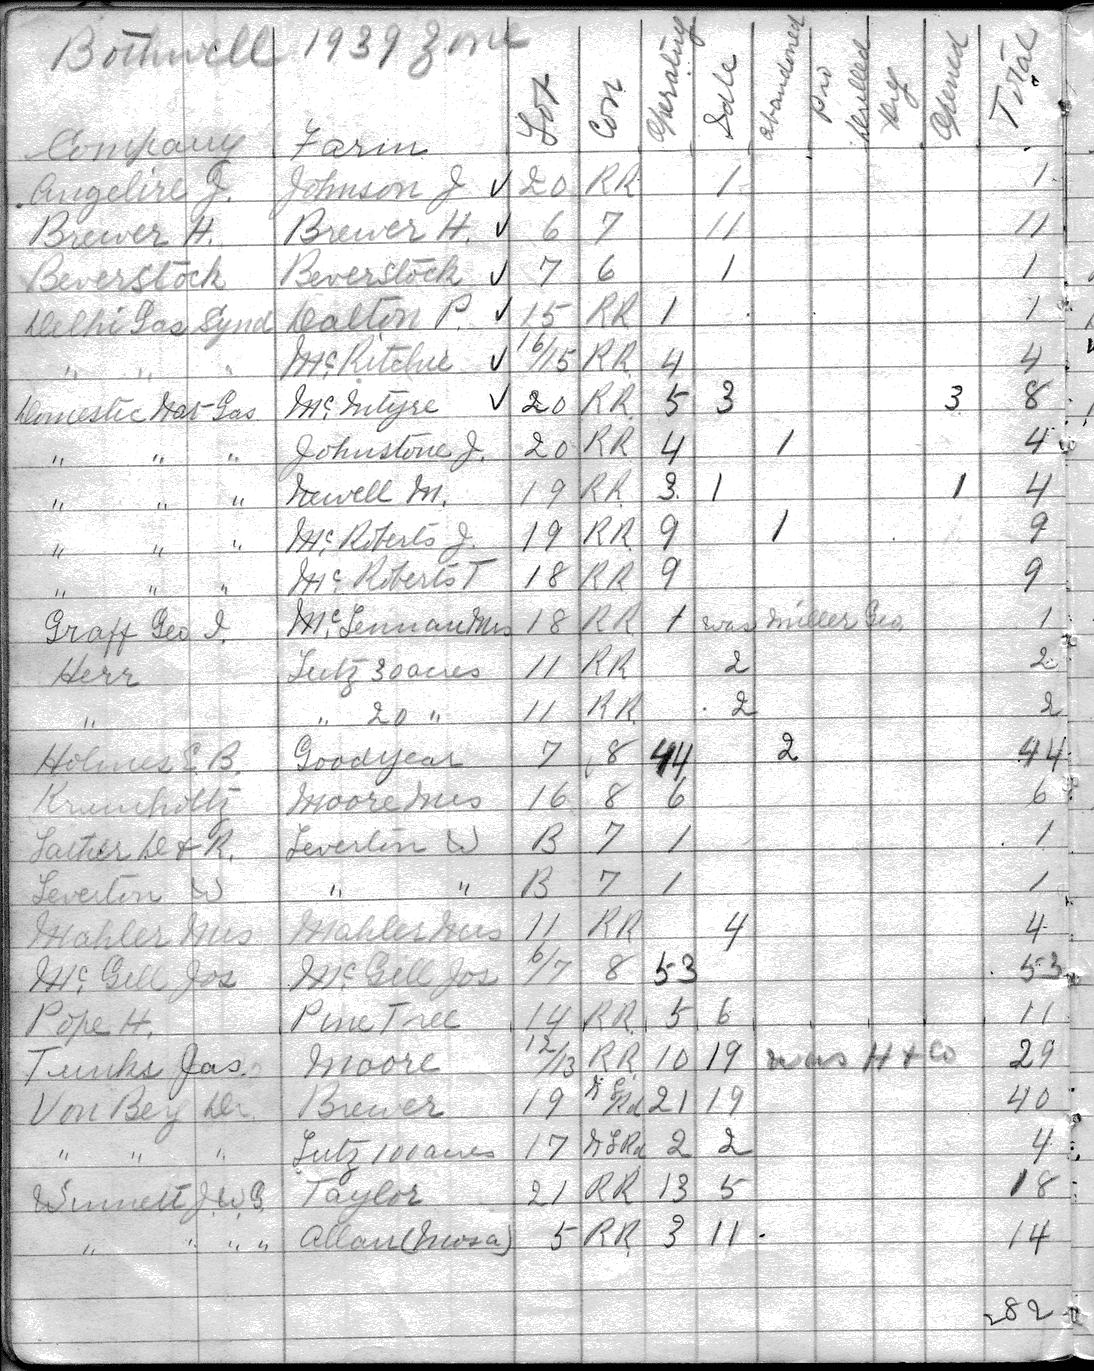 Bothwell 1939 Zone
Company Farm Lot Con Operating Idle Abandoned Pro Drilled Dry Opened Total
Angelire J. Johnson J ✓ 20 RR 1 1
Brewer H. Brewer H. ✓ 6 7 11 11
Beverstock Beverstock ✓ 7 6 1 1
Delhi Gas Synd Dalton P. ✓ 15 RR 1 1
" " " McRitchie ✓ 16/15 RR 4 4
Domestic Nat Gas McIntyre ✓ 20 RR 5 3 3 8
" " " Johnstone J. 20 RR 4 1 4
" " " Newell M. 19 RR 3 1 1 4
" " " McRoberts J. 19 RR 9 1 9
" " " McRoberts T 18 RR 9 9
Graff Geo I. McLennan Mrs 18 RR 1 was Miller Geo 1
Herr Lutz 30 acres 11 RR 2 2
" " 20 " 11 RR 2 2
Holmes E. B. Goodyear 7 8 44 2 44
Krumholtz Moore Mrs 16 8 6 6
Father D & R. Leverton W B 7 1 1
Leverton W " " B 7 1 1
Mahler Mrs Mahler Mrs 11 RR 4 4
McGill Jos McGill Jos 6/7 8 53 53
Pope H. Pine Tree 14 RR 5 6 11
Tunks Jas. Moore 12/13 RR 10 19 was H & Co 29
Von Bey Dr. Brewer 19 21 19 40
" " " Lutz 100 acres 17 2 2 4
Winnett J.W.G. Taylor 21 RR 13 5 18
" " " " Allan (Mosa) 5 RR 3 11 14
282